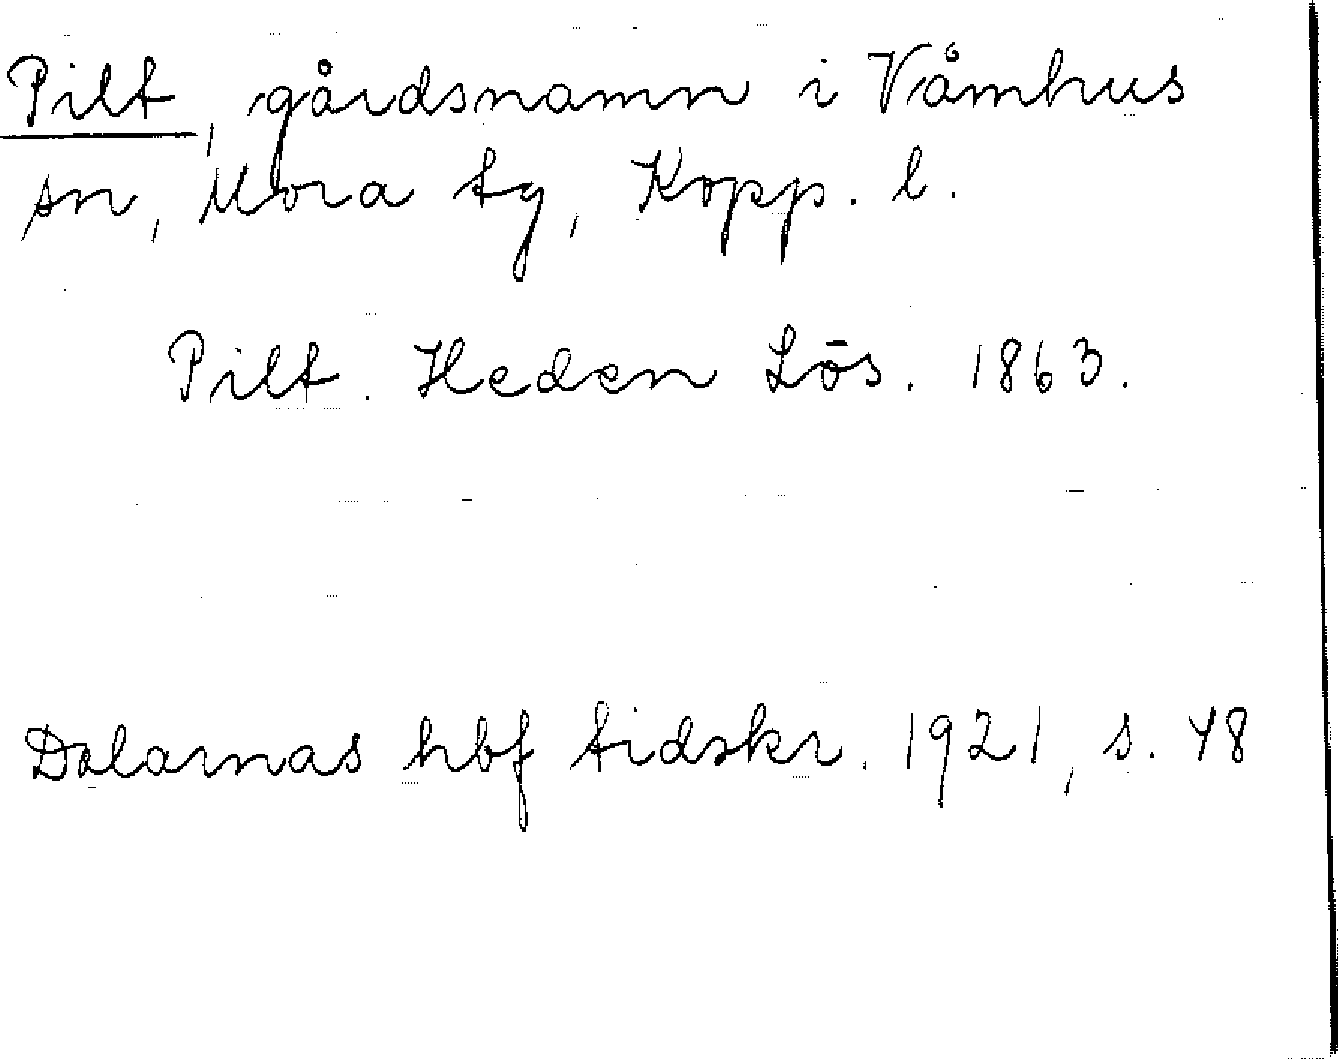 Pilt, gårdsnamn i Våmhus
sn, Mora tg, Kopp. l.
Pilt. Heden Lös. 1863.
Dalarnas hbf tidskr. 1921, s. 48